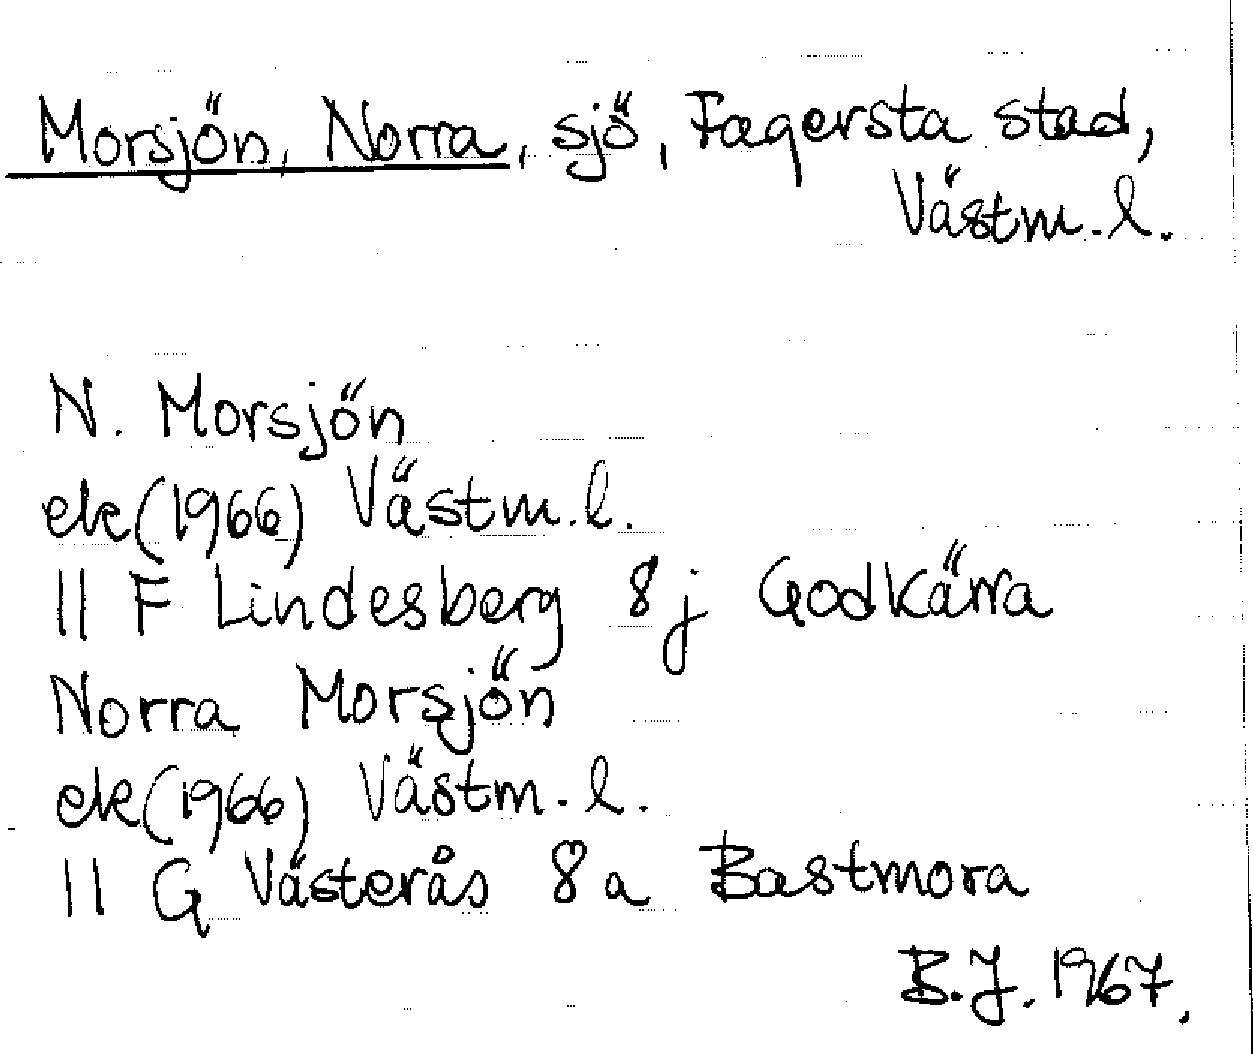 Morsjön, Norra, sjö, Fagersta stad,
Västm. l.
N. Morsjön
ek (1966) Västm. l.
11 F Lindesberg 8 j Godkärra
Norra Morsjön
ek (1966) Västm. l.
11 G Västerås 8 a Bastmora
B.J. 1967.